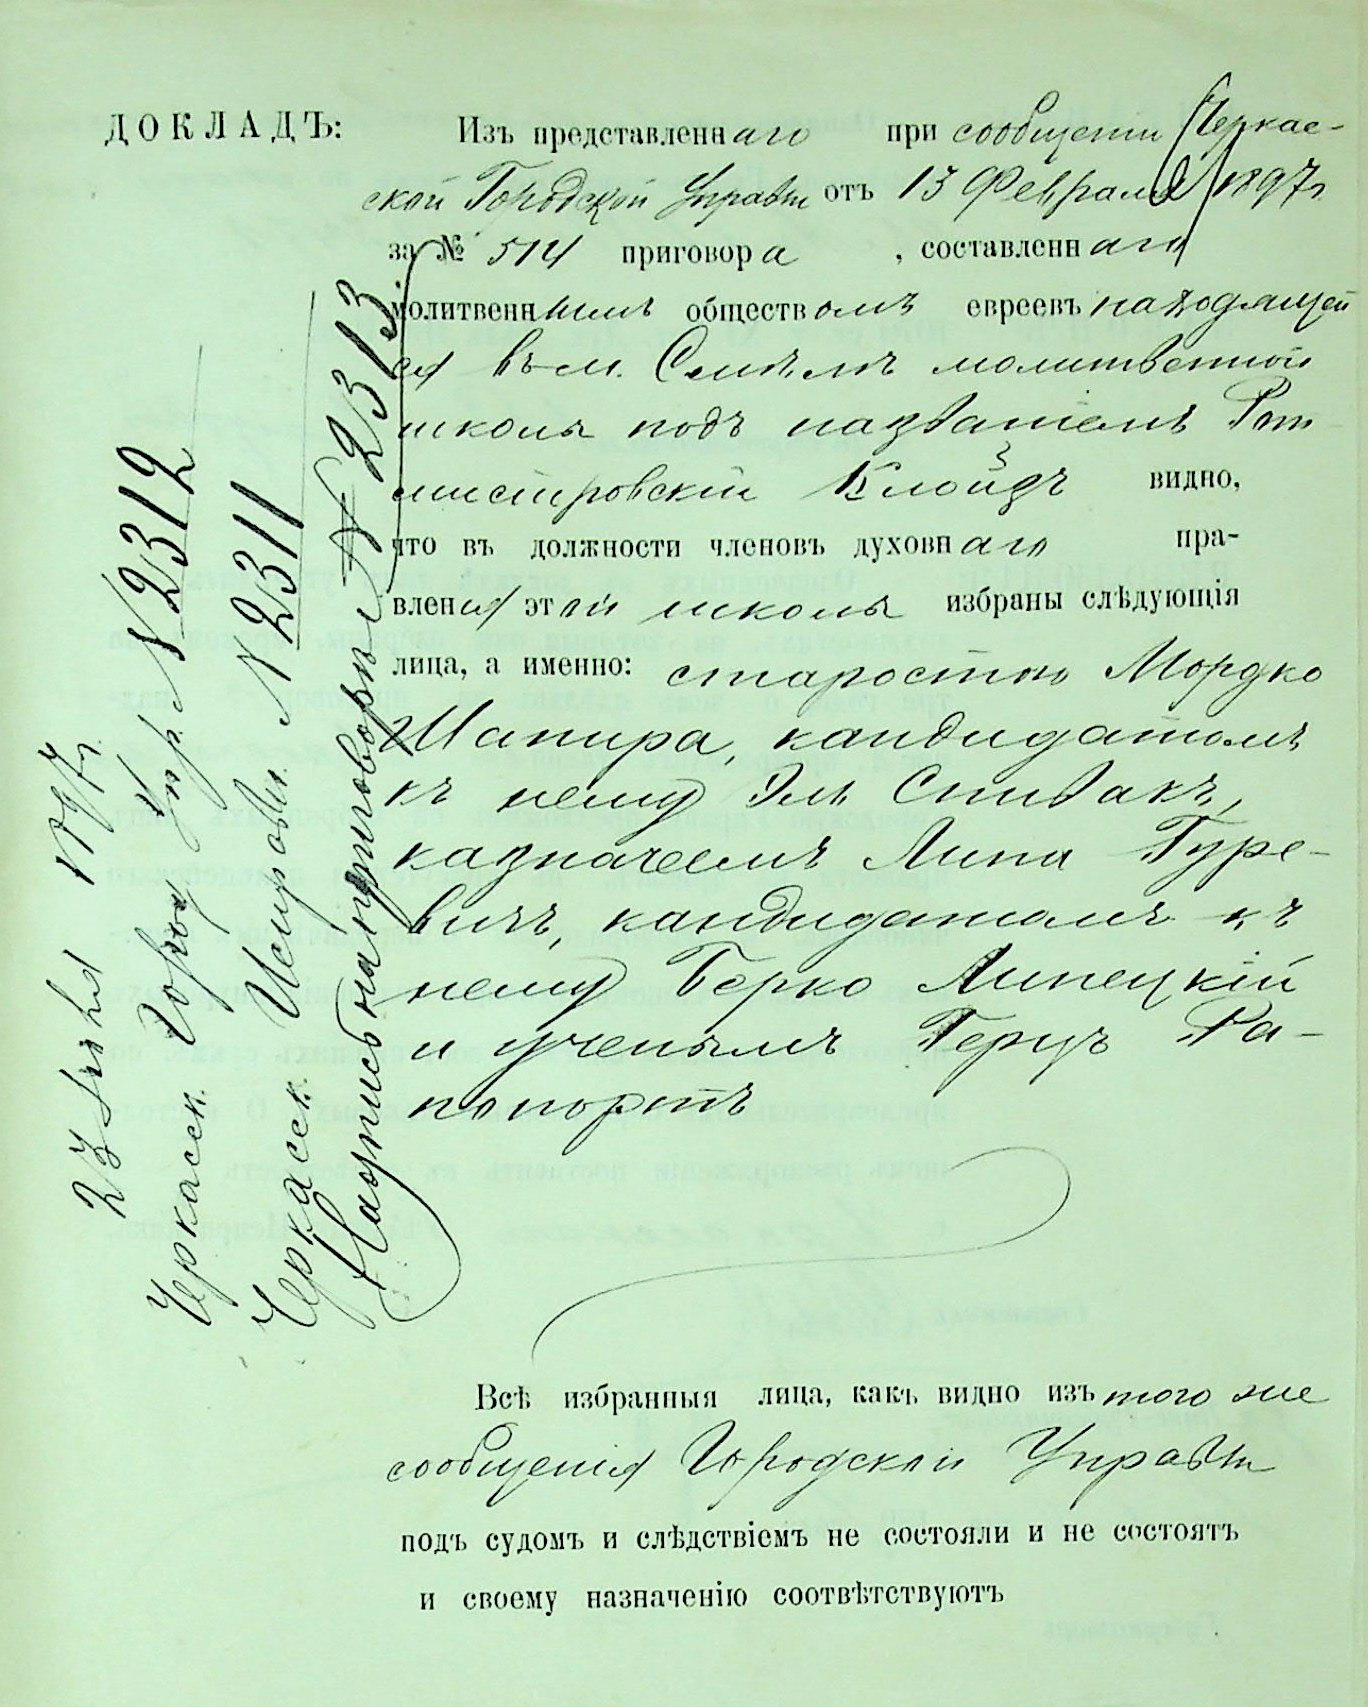 ДОКЛАДЪ:
Изъ представленнаго при сообщеніи Черкас-
ской Городской Управы отъ 13 Февраля 1897 г.
за № 514 приговора, составленнаго
молитвеннымъ обществомъ евреевъ находящей
ся въ м. Смѣлѣ молитвенной
школы подъ названіемъ Рот
мистровскій Клойзъ видно,
что въ должности членовъ духовнаго пра-
вленія этой школы избраны слѣдующія
лица, а именно: старостою Мордко
Шапира, кандидатомъ
къ нему Эль Спивакъ,
казначеемъ Липа Гуре-
вичъ, кандидатомъ къ
нему Берко Липецкій
и ученымъ Герцъ Ра-
попортъ
Всѣ избранныя лица, какъ видно изъ того же
сообщенія Городской Управы
подъ судомъ и слѣдствіемъ не состояли и не состоятъ
и своему назначенію соотвѣтствуютъ
23 1897 г.
Черкасск. Город. Упр. № 2312
Черкасск. Исправн. № 2311
Надпись на приговорѣ № 2313.